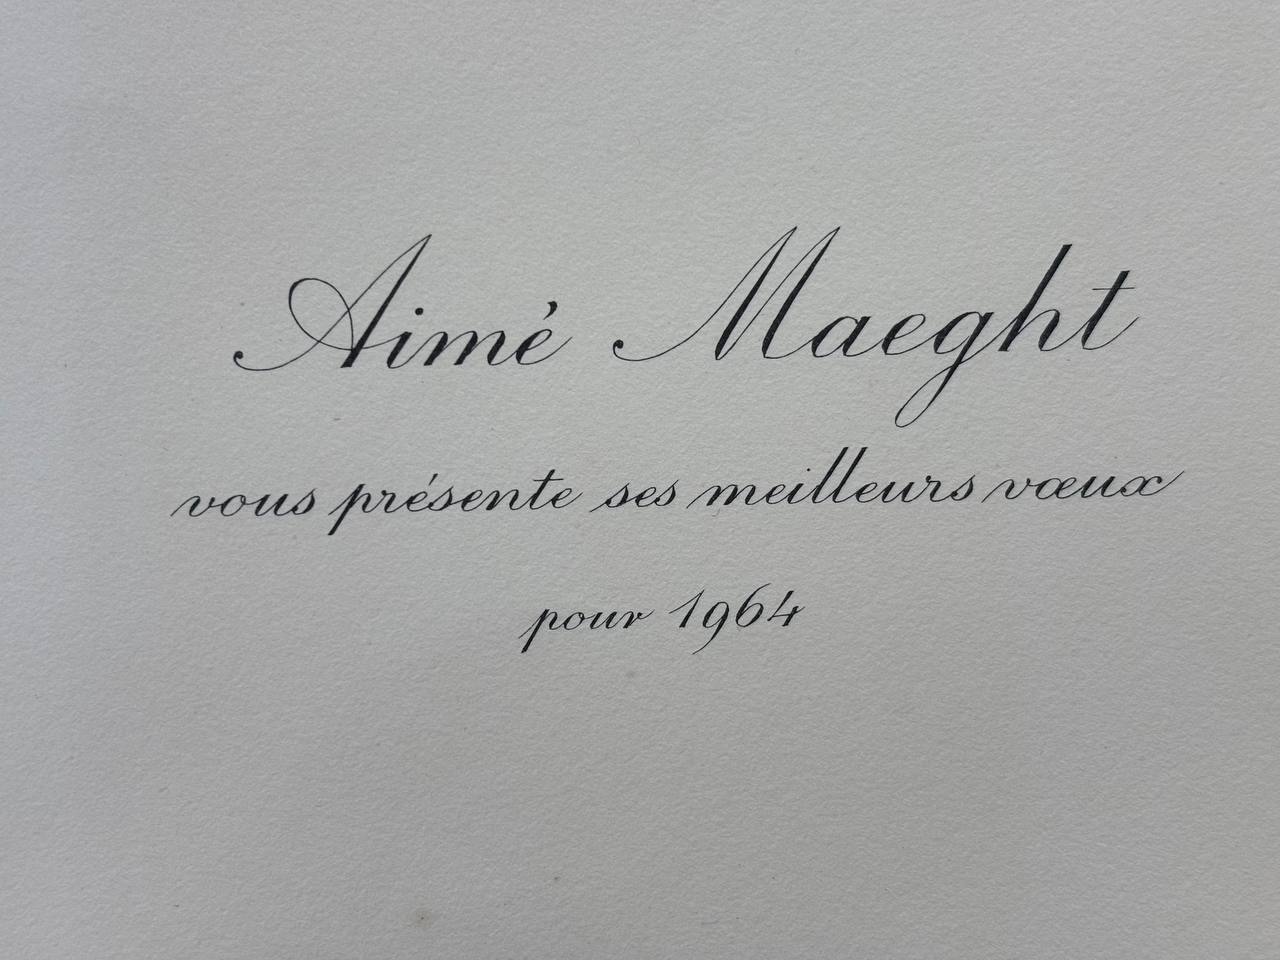 Aimé Maeght
vous présente ses meilleurs vœux
pour 1964